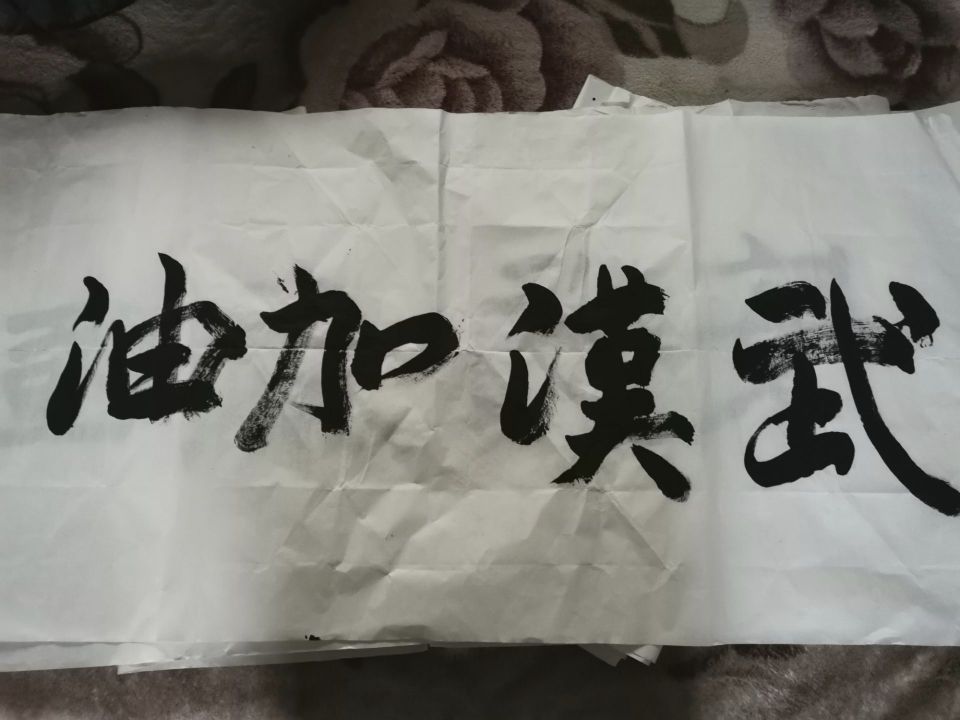 武漢加油